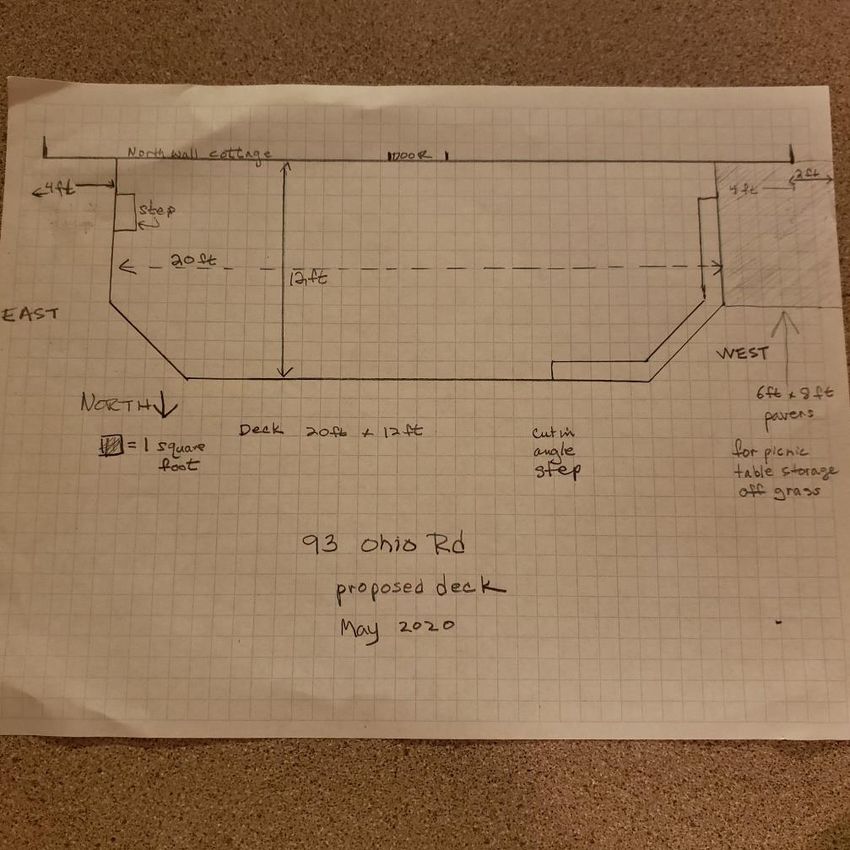 North wall cottage
DOOR
4ft
step
4ft
2ft
20ft
12ft
EAST
WEST
NORTH
= 1 square
foot
Deck 20ft x 12ft
cut in
angle
step
6ft x 8ft
pavers
for picnic
table storage
off grass
93 Ohio Rd
proposed deck
May 2020